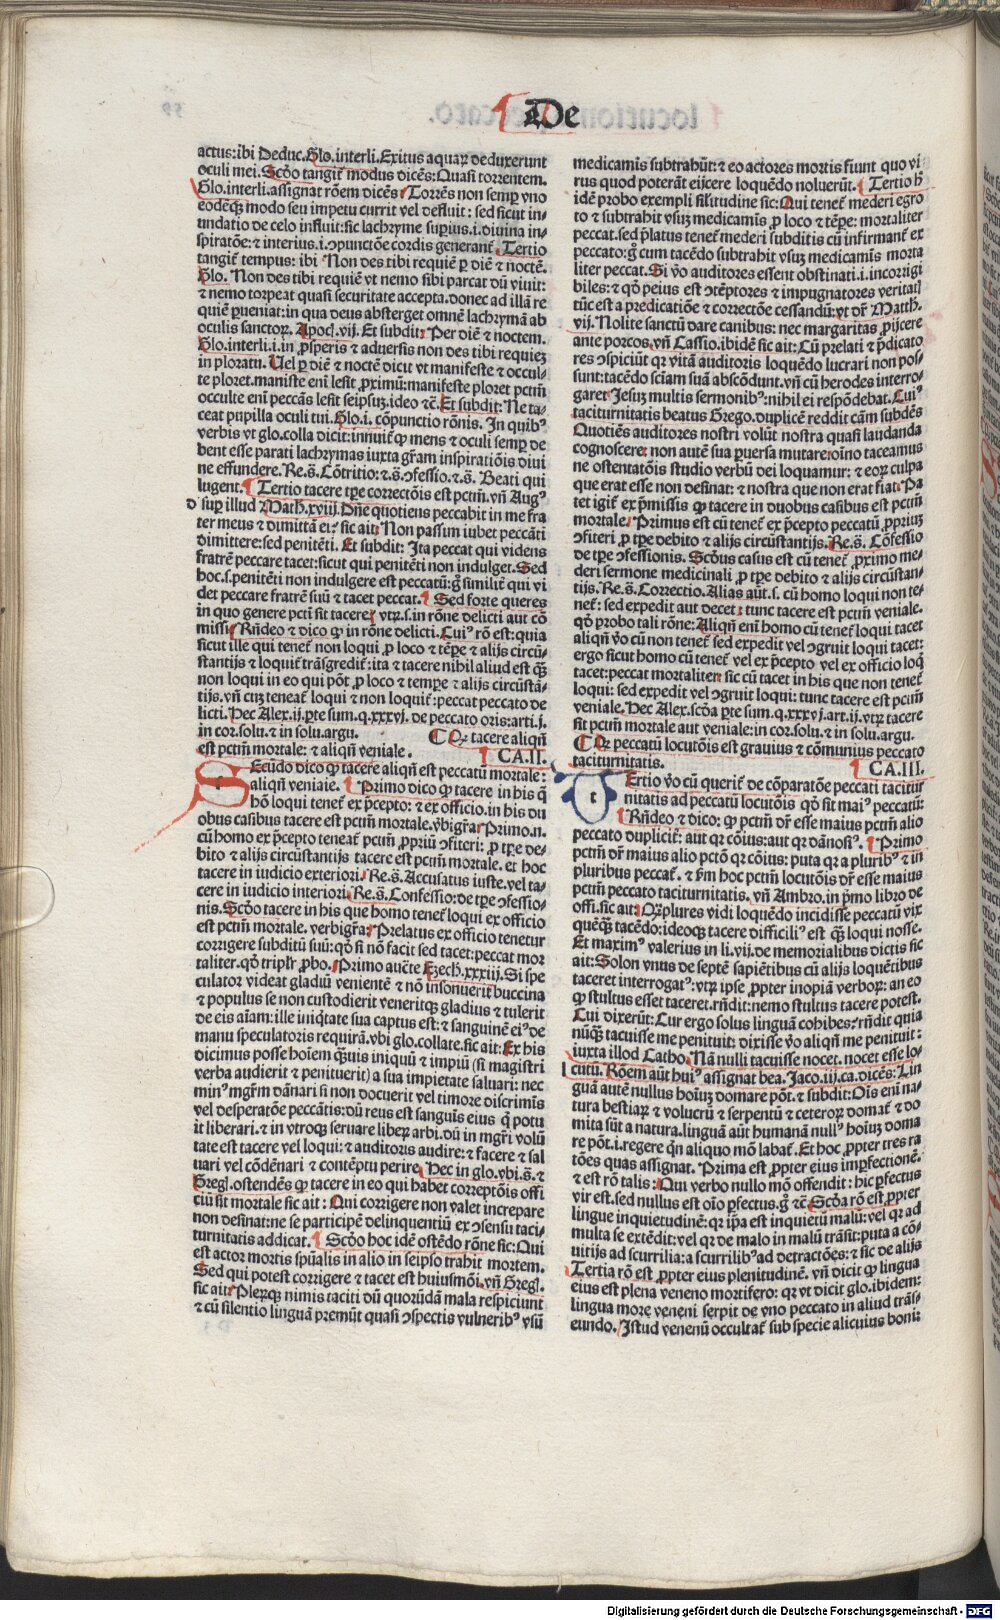 De
actus:ibi Deduc.Glo.interli.Exitus aquaꝝ deduxerunt
oculi mei.Scḋo tangit modus dicẽs:Quasi torrentem.
Glo.interli.assignat rõem dicẽs Torrẽs non semꝑ vno
eodẽqꝫ modo seu impetu currit vel defluit:sed sicut in-
undatio de celo influit:sic lachryme suꝑius.i.diuina in-
spiratõe:⁊ interius.i.ↄpunctõe cordis generant̃.Tertio
tangit̃ tempus:ibi Non des tibi requiẽ ꝑ diẽ ⁊ noctẽ.
Glo. Non des tibi requiẽ vt nemo sibi parcat dũ viuit:
⁊ nemo torpeat quasi securitate accepta.donec ad illã re
quiẽ ꝑueniat:in qua deus absterget omnẽ lachrymã ab
oculis sanctoꝝ.Apocĺ.vij.Et subdit:Per diẽ ⁊ noctem.
Glo.interli.i.in ꝓsperis ⁊ aduersis non des tibi requieꝫ
in ploratu.Uel ꝑ diẽ ⁊ noctẽ dicit vt manifeste ⁊ occul-
te ploret.maniste eni lesit ꝓximũ:manifeste ploret pctm̃
occulte eni peccãs lesit seipsuꝫ.ideo ⁊c̃.Et subdit:Ne ta-
ceat pupilla oculi tui.Glo.i.cõpunctio rõnis.In quibꝰ
verbis vt glo.colla dicit:innuit̃ ꝙ mens ⁊ oculi semꝑ de
bent esse parati lachrymas iuxta gr̃am inspiratiõis diui
ne effundere.Re.s̃.Cõtritio:⁊.s̃.ↄfessio.⁊.s̃. Beati qui
lugent. Tertio tacere tꝑe correctõis est pctm̃.vñ Augꝰ
d suꝑ illud Math.xviij.Dñe quotiens peccabit in me fra
ter meus ⁊ dimittã ei:sic ait Non passim iubet peccãti
dimittere:sed penitẽti. Et subdit: Ita peccat qui videns
fratrẽ peccare tacet:sicut qui penitẽti non indulget.Sed
hoc.s.penitẽti non indulgere est peccatũ:g̊ similiẽ qui vi
det peccare fratrẽ suũ ⁊ tacet peccat. Sed forte queres
in quo genere pcti sit tacere vtꝝ.s.in rõne delicti aut cõ
missi Rñdeo ⁊ dico ꝙ in rõne delicti.Cuiꝰ rõ est:quia
sicut ille qui tenet̃ non loqui ꝓ loco ⁊ tẽꝑe ⁊ alijs circũ-
stantijs ⁊ loquit̃ trãsgredit̃:ita ⁊ tacere nihil aliud est qꝫ̃
non loqui in eo qui põt ꝓ loco ⁊ tempꝑe ⁊ alijs circũstã-
tijs.vñ cuꝫ teneat̃ loqui ⁊ non loquit̃:peccat peccato de
licti.Hec Alex.ij.ꝑte sum.q.xxxvj.de peccato oris:arti.j.
in cor.solu.⁊ in solu.argu. C Qꝙ tacere aliqñ
est pctm̃ mortale:⁊ aliqñ veniale. CA.II.
S Ecũdo dico ꝙ tacere aliqñ est peccatũ mortale:
aliqñ veniale. Primo dico ꝙ tacere in his q̃
hõ loqui tenet̃ ex p̃cepto:⁊ ex officio.in his du
obus casibus tacere est pctm̃ mortale.v̓bigr̃a Primo.n.
cũ homo ex p̃cepto teneat̃ pctm̃ ꝓpriũ ↄfiteri:ꝓ tꝑe de-
bito ⁊ alijs circũstantijs tacere est pctm̃ mortale. et hoc
tacere in iudicio exteriori. Re.s̃.Accusatus iuste.vel ta-
cere in iudicio interiori.Re.s̃.Confessio:de tꝑe ↄfessio-
nis.Scḋo tacere in his que homo tenet̃ loqui ex officio
est pctm̃ mortale. verbigr̃a Prelatus ex officio tenetur
corrigere subditũ suũ:qḋ si nõ facit sed tacet:peccat mor
taliter.qḋ tripĺr ꝓbo. Primo auc̃te Ezech.xxxiij.Si spe
culator videat gladiũ venientẽ ⁊ nõ insonuerit buccina
⁊ populus se non custodierit veneritqꝫ gladius ⁊ tulerit
de eis aĩam:ille iniq̃tate sua captus est:⁊ sanguinẽ eiꝰ de
manu speculatoris requirã.vbi glo.collate.sic ait:Ex his
dicimus posse hoĩem qꝫuis iniquũ ⁊ impiũ (si magistri
verba audierit ⁊ penituerit) a sua impietate saluari: nec
minꝰ mgr̃m dãnari si non docuerit vel timore discriminis
vel desperatõe peccãtis:dũ reus est sanguis eius q̃ potu
it liberari.⁊ in vtroqꝫ seruare liberꝝ arbi.dũ in mgr̃i volũ
tate est tacere vel loqui:⁊ auditoris audire:⁊ facere ⁊ sal
uari vel cõdẽnari ⁊ contẽptu perire Hec in glo.vbi.s̃.⁊
Gregĺ.ostendẽs ꝙ tacere in eo qui habet correptõis offi
ciũ sit mortale sic ait: Qui corrigere non valet increpare
non desinat:ne se participẽ delinquentiũ ex ↄsensu taci-
turnitatis addicat. Scḋo hoc idẽ ostẽdo rõne sic:Qui
est actor mortis sꝑualis in alio in seipso trahit mortem.
Sed qui potest corrigere ⁊ tacet est huiusmõi.vñ Gregĺ.
sic ait Plerqꝫ nimis taciti dũ quorũdã mala respiciunt
⁊ cũ silentio linguã premũt quasi ↄspectis vulneribꝰ vsũ
medicamis subtrahũt:⁊ eo actores mortis fiunt quo vi
rus quod poterãt eijcere loquẽdo noluerũt. Tertio h̓
idẽ probo exempli silitudine sic:Qui tenet̃ mederi egro
to ⁊ subtrahit vsuꝫ medicamis ꝓ loco ⁊ tẽꝑe: mortaliter
peccat.sed p̃latus tenet̃ mederi subditis cũ infirmant̃ ex
peccato:g̊ cum tacẽdo subtrahit vsuꝫ medicamis morta
liter peccat.Si v̊o auditores essent obstinati.i.incorrigi
biles:⁊ qḋ peius est ↄtẽptores ⁊ impugnatores veritat̃
tũc est a predicatiõe ⁊ correctõe cessandũ:vt dr̃ Matth.
vij.Nolite sanctũ dare canibus:nec margaritas ꝓijcere
ante porcos.vñ Cassio.ibidẽ sic ait:Cũ prelati ⁊ p̃dicato
res ↄspiciũt qꝛ vitã auditoris loquẽdo lucrari non pos-
sunt:tacẽdo sciam suã abscõdunt.vñ cũ herodes interro-
garet Jesuꝫ multis sermonibꝰ:nihil ei respõdebat.Cuiꝰ
taciturnitatis beatus Grego.duplicẽ reddit cãm subdẽs
Quotiẽs auditores nostri volũt nostra quasi laudanda
cognoscere non autẽ sua ꝑuersa mutare oĩno taceamus
ne ostentatõis studio verbũ dei loquamur: ⁊ eoꝝ culpa
que erat esse non desinat: ⁊ nostra que non erat fiat Pa
tet igit̃ ex p̃missis ꝙ tacere in duobus casibus est pctm̃
mortale. Primus est cũ tenet̃ ex p̃cepto peccatũ ꝓpriuꝫ
ↄfiteri ꝓ tꝑe debito ⁊ alijs circũstantijs.Re.s̃. Cõfessio
de tꝑe ↄfessionis. Scḋus casus est cũ tenet̃ ꝓximo me-
deri sermone medicinali ꝓ tꝑe debito ⁊ alijs circũstan-
tijs.Re.s̃.Correctio. Alias aũt.s. cũ homo loqui non te-
net̃: sed expedit aut decet tunc tacere est pctm̃ veniale.
qḋ probo tali rõne:Aliqñ eni homo cũ tenet̃ loqui tacet
aliqñ v̊o cũ non tenet̃ sed expedit vel ↄgruit loqui tacet:
ergo sicut homo cũ tenet̃ vel ex p̃cepto vel ex officio loq̃
tacet:peccat mortaliter sic cũ tacet in his que non tenet̃
loqui: sed expedit vel ↄgruit loqui: tunc tacere est pctm̃
veniale.Hec Alex.scḋa ꝑte sum.q.xxxvj.art.ij.vtꝝ tacere
sit pctm̃ mortale aut veniale:in cor.solu.⁊ in solu.argu.
C Qꝙ peccatũ locutõis est grauius ⁊ cõmunius peccato
taciturnitatis. CA.III.
t Ertio v̊o cũ querit̃ de cõparatõe peccati tacitur
nitatis ad peccatũ locutõis qḋ sit maiꝰ peccatũ:
Rñdeo ⁊ dico: ꝙ pctm̃ dr̃ esse maius pctm̃ alio
peccato duplicit̃: aut qꝛ cõius:aut qꝛ dãnosiꝰ. Primo
pctm̃ dr̃ maius alio pctõ qꝛ cõius: puta qꝛ a pluribꝰ ⁊ in
pluribus peccat̃. ⁊ p̃m hoc pctm̃ locutõis dr̃ esse maius
pctm̃ peccato taciturnitatis. vñ Ambro.in p̃mo libro de
offi.sic ait Qꝙplures vidi loquẽdo incidisse peccatũ vix
quẽqꝫ̃ tacẽdo:ideoqꝫ tacere difficiliꝰ est qꝫ̃ loqui nosse.
Et maximꝰ valerius in li.vij.de memorialibus dictis sic
ait:Solon vnus de septẽ sapiẽtibus cũ alijs loquẽtibus
taceret interrogatꝰ:vtꝝ ipse ꝓpter inopiã verboꝝ:an eo
ꝙ stultus esset taceret.rñdit:nemo stultus tacere potest.
Cui dixerũt:Cur ergo solus linguã cohibes:rñdit quia
nũqꝫ̃ tacuisse me penituit: dixisse v̊o aliqñ me penituit:
iuxta illod Catho. Nã nulli tacuisse nocet.nocet esse lo-
l cutũ. Rõem aũt huiꝰ assignat bea.Jaco.iij.ca.dicẽs:Lin
guã autẽ nullus hoĩuꝫ domare põt.⁊ subdit:Oĩs eni na-
tura bestiaꝝ ⁊ volucrũ ⁊ serpentũ ⁊ ceteroꝝ domat̃ ⁊ do
mita sũt a natura.linguã aũt humanã nullꝰ hoĩuꝫ doma
re põt.i.regere qñ aliquo mõ labat̃.Et hoc ꝓpter tres ra
tões quas assignat. Prima est ꝓpter eius imꝑfectionẽ.
⁊ est rõ talis: Qui verbo nullo mõ offendit: hic ꝑfectus
vir est.sed nullus est oĩo ꝑfectus.g̊ ⁊c̃ Scḋa rõ est ꝓpter
lingue inquietudinẽ:qꝛ ip̃a est inquietũ malũ:vel qꝛ ad
multa se extẽdit:vel qꝛ de malo in malũ trãsit:puta a cõ-
uitijs ad scurrilia:a scurrilibꝰ ad detractões:⁊ sic de alijs
Tertia rõ est ꝓpter eius plenitudinẽ. vñ dicit ꝙ lingua
eius est plena veneno mortifero: qꝛ vt dicit glo.ibidem:
lingua more veneni serpit de vno peccato in aliud trãs-
eundo. Istud venenũ occultat̃ sub specie alicuius boni:
Digitalisierung gefördert durch die Deutsche Forschungsgemeinschaft - DFG